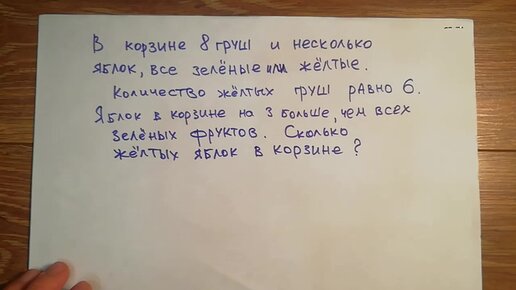 В корзине 8 груш и несколько
яблок, все зелёные или жёлтые.
Количество жёлтых груш равно 6.
Яблок в корзине на 3 больше, чем всех
зелёных фруктов. Сколько
жёлтых яблок в корзине?